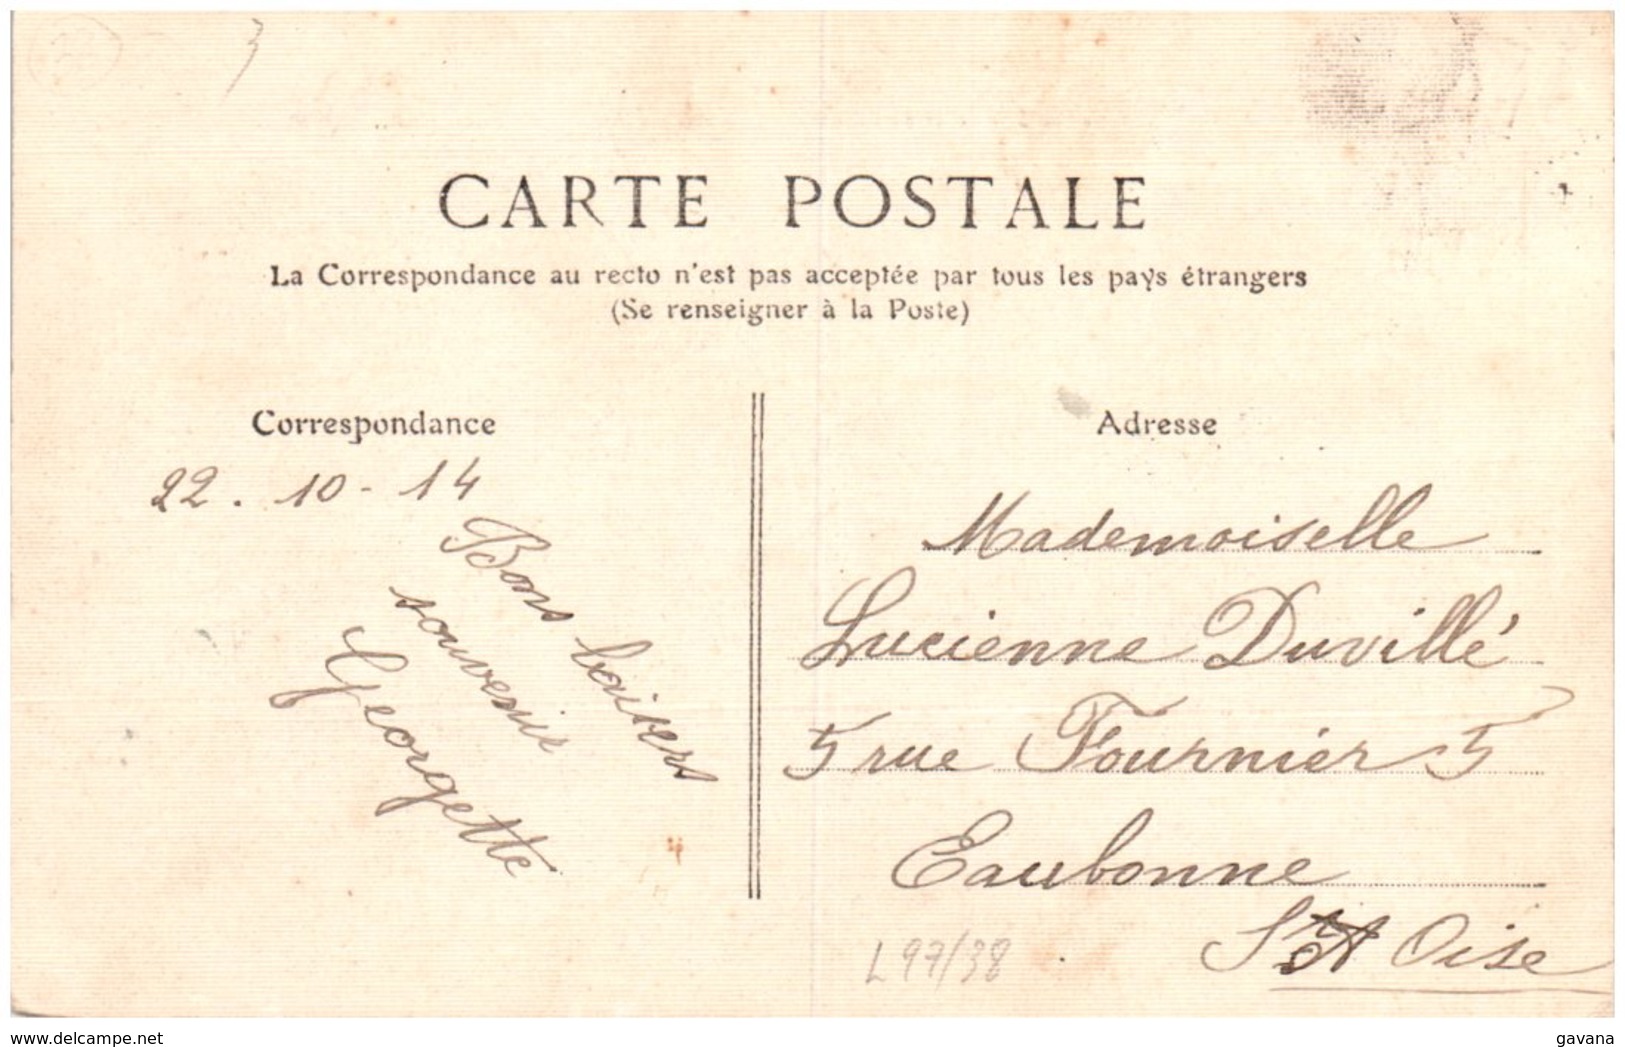 3
CARTE POSTALE
La Correspondance au recto n'est pas acceptée par tous les pays étrangers
(Se renseigner à la Poste)
Correspondance
22. 10 - 14
Bons baisers
souvenir
Georgette
Adresse
Mademoiselle
Lucienne Duvillé
5 rue Fournier 5
Eaubonne
Oise
L 97/38
www.delcampe.net
gavana